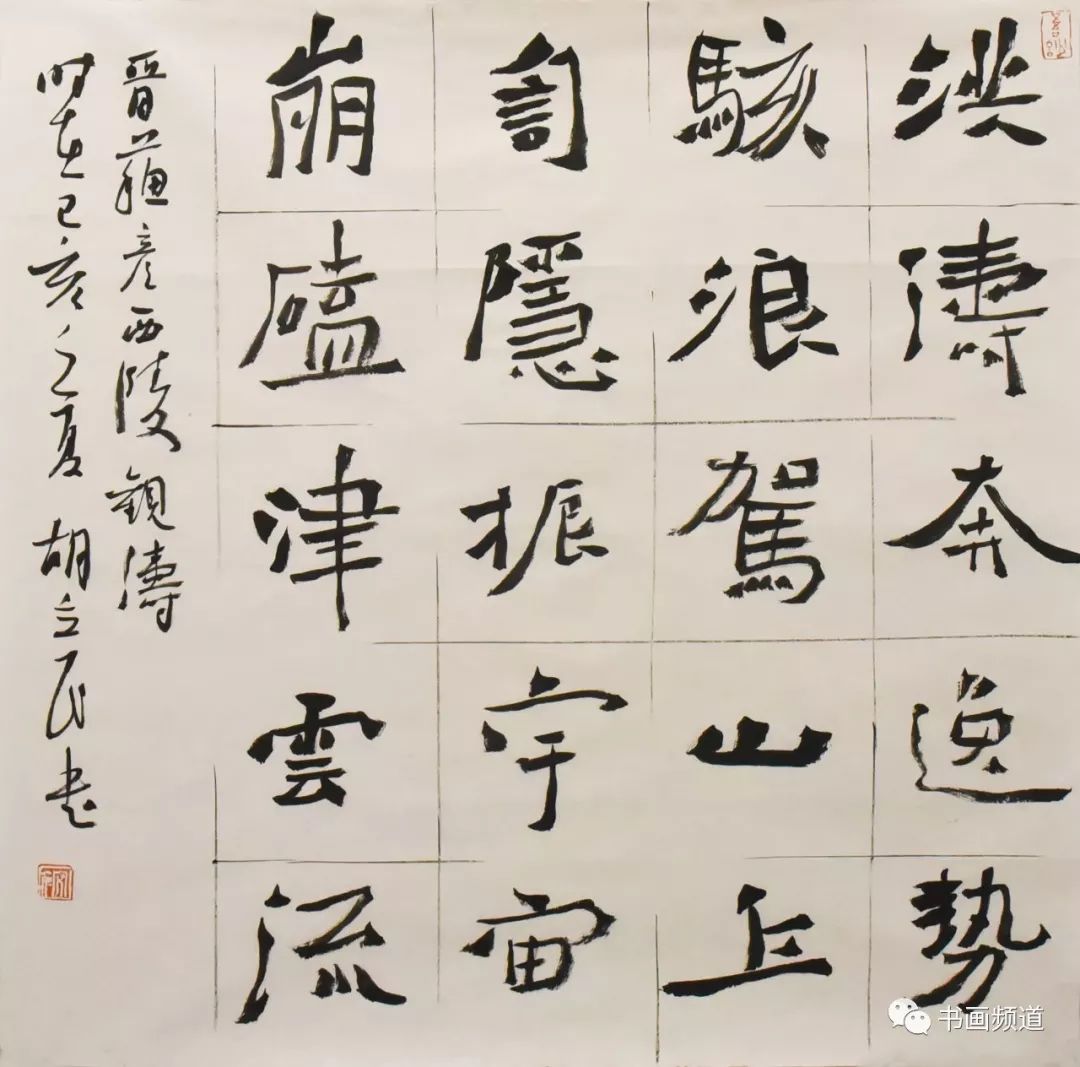 洪濤奔逸勢
駭浪駕山丘
訇隱振宇宙
崩磕津雲流
晉蘇彥西陵觀濤
時在己亥之夏 胡立民书
书画频道